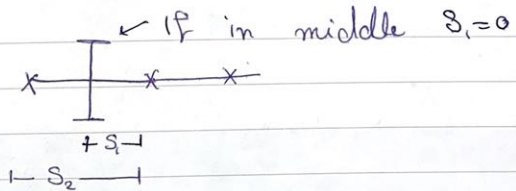 If in middle S₁=0
+ S₁ ⊣
⊢ S₂ ⊣